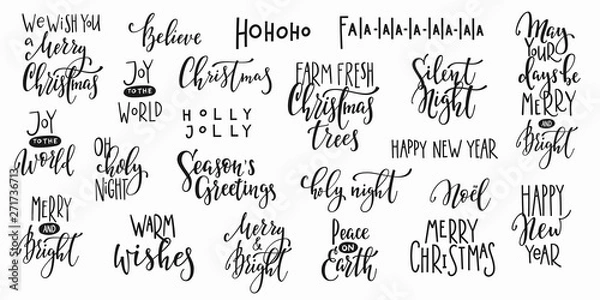 We wish you
a Merry
Christmas
Believe
HoHoHo
Fa-la-la-la-la-la-la
May
your
days be
MERRY
AND
Bright
JOY
TO THE
WORLD
Christmas
FARM FRESH
Christmas
trees
Silent
Night
JOY
TO THE
World
HOLLY
JOLLY
HAPPY NEW YEAR
OH
holy
NIGHT
Season's
Greetings
holy night
Noël
HAPPY
New
YEAR
MERRY
AND
Bright
WARM
wishes
Merry
&
Bright
Peace
ON
Earth
MERRY
CHRISTMAS
Adobe Stock | #271736713